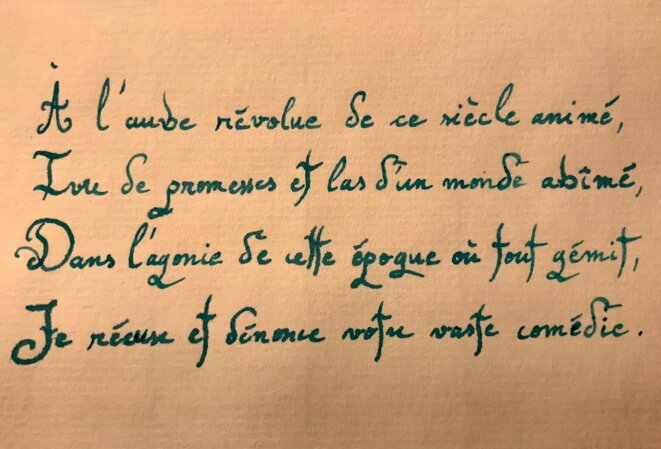 À l'aube révolue de ce siècle animé,
Ivre de promesses et las d'un monde abîmé,
Dans l'agonie de cette époque où tout gémit,
Je récuse et dénonce votre vaste comédie.